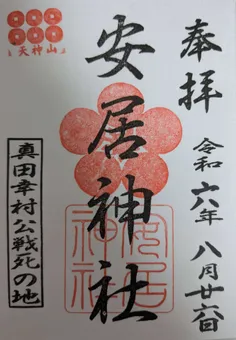 奉拝
令和六年 八月廿六日
安居神社
安居神社
天神山
真田幸村公戦死の地